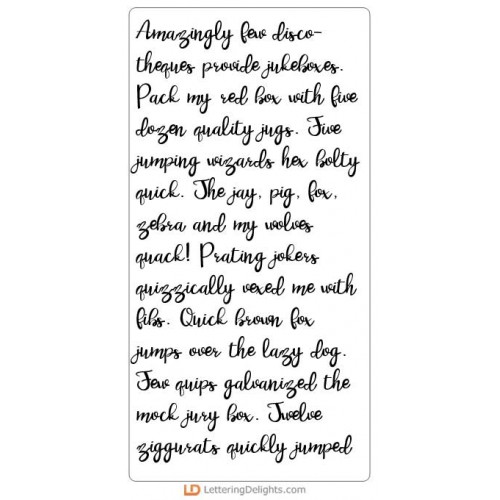 Amazingly few disco-
theques provide jukeboxes.
Pack my red box with five
dozen quality jugs. Five
jumping wizards hex bolty
quick. The jay, pig, fox,
zebra and my wolves
quack! Prating jokers
quizzically vexed me with
fibs. Quick brown fox
jumps over the lazy dog.
Few quips galvanized the
mock jury box. Twelve
ziggurats quickly jumped
LD LetteringDelights.com